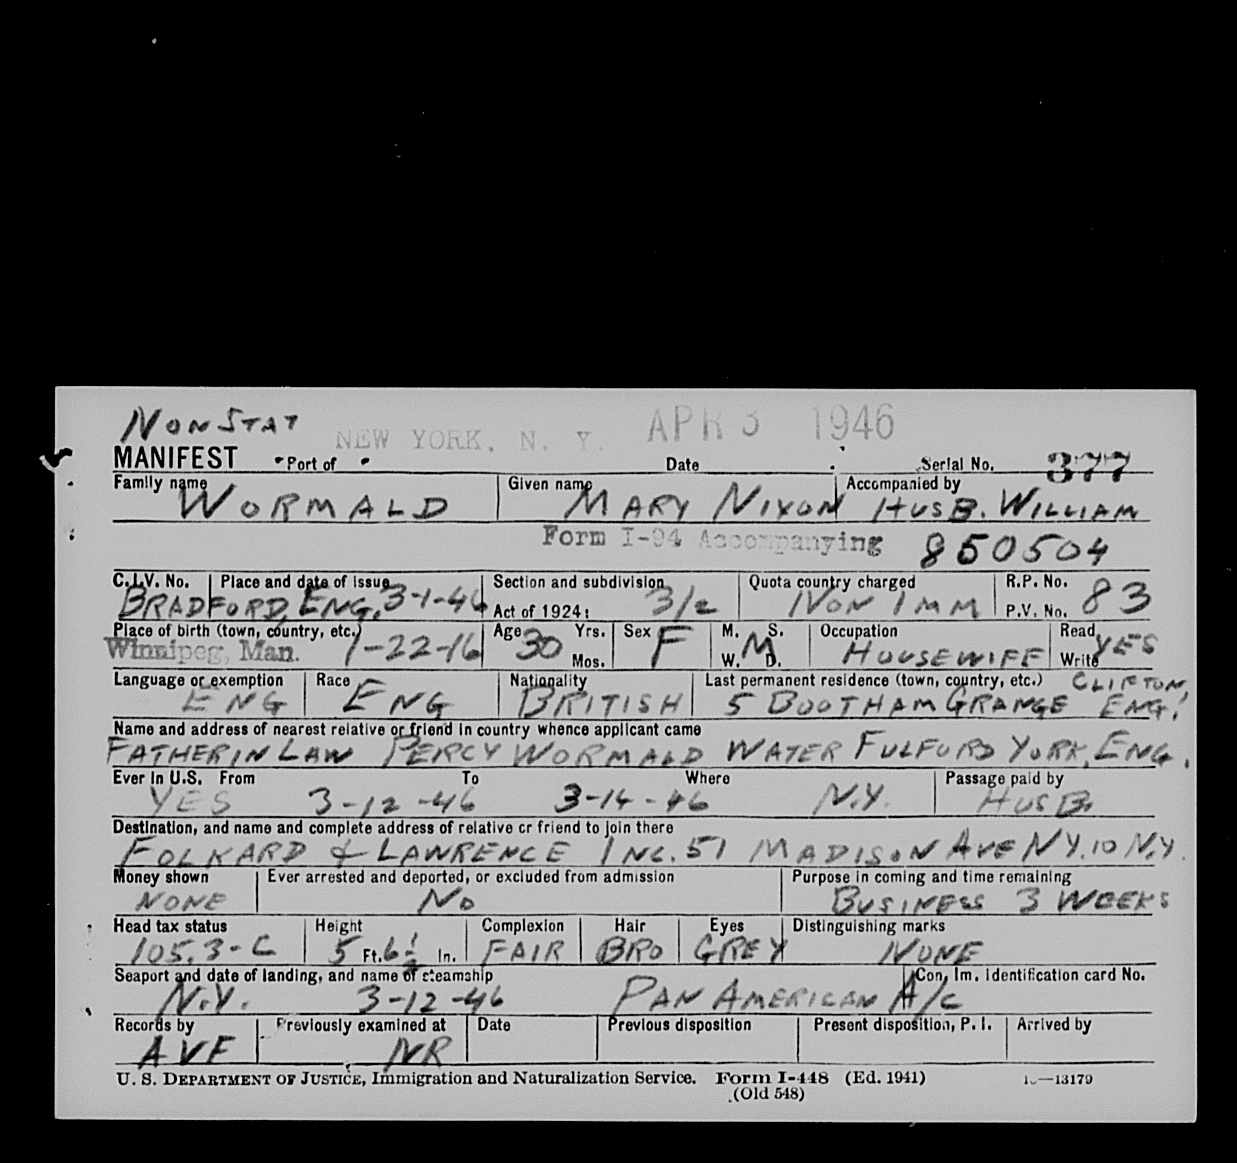 NonStat
NEW YORK, N. Y. APR 3 1946
MANIFEST Port of Date Serial No. 377
Family name WORMALD Given name MARY NIXON Accompanied by HUSB. WILLIAM
Form I-94 Accompanying 850504
C.I.V. No. Place and date of issue Section and subdivision Quota country charged R.P. No.
BRADFORD, ENG. 3-1-46 Act of 1924: 3/2 NON IMM P.V. No. 83
Place of birth (town, country, etc.) Age Yrs. Sex M. S. Occupation Read
Winnipeg, Man. 1-22-16 30 Mos. F W. M D. HOUSEWIFE Write YES
Language or exemption Race Nationality Last permanent residence (town, country, etc.) CLIFTON,
ENG ENG BRITISH 5 BOOTHAM GRANGE ENG.
Name and address of nearest relative or friend in country whence applicant came
FATHER IN LAW PERCY WORMALD WATER FULFORD YORK, ENG.
Ever in U.S. From To Where Passage paid by
YES 3-12-46 3-14-46 N.Y. HUSB.
Destination, and name and complete address of relative or friend to join there
FOLKARD & LAWRENCE INC. 51 MADISON AVE N.Y. 10 N.Y.
Money shown Ever arrested and deported, or excluded from admission Purpose in coming and time remaining
NONE NO BUSINESS 3 WEEKS
Head tax status Height Complexion Hair Eyes Distinguishing marks
105.3-C 5 Ft. 6½ In. FAIR BRO GREY NONE
Seaport and date of landing, and name of steamship Con. Im. Identification card No.
N.Y. 3-12-46 PAN AMERICAN A/C
Records by Previously examined at Date Previous disposition Present disposition, P. I. Arrived by
AVF NR
U. S. DEPARTMENT OF JUSTICE, Immigration and Naturalization Service. Form I-448 (Ed. 1941) 16—13179
(Old 548)